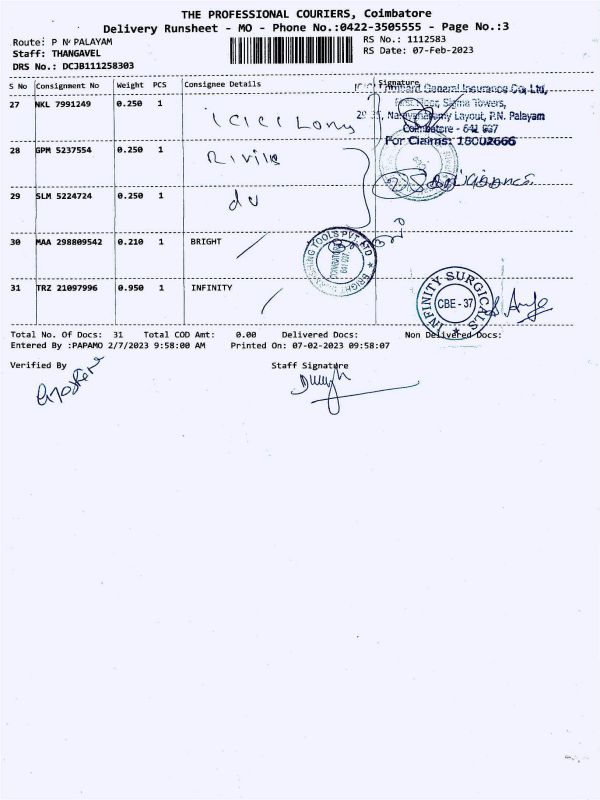 THE PROFESSIONAL COURIERS, Coimbatore
Delivery Runsheet - MO - Phone No.:0422-3505555 - Page No.:3
Route: P N PALAYAM
RS No.: 1112583
Staff: THANGAVEL
RS Date: 07-Feb-2023
DRS No.: DCJB111258303
S No Consignment No Weight PCS Consignee Details Signature
27 NKL 7991249 0.250 1
ICICI
General Insurance Co. Ltd,
First Floor, Sigma Towers,
Layout, P.N. Palayam
Coimbatore - 641 037
For Claims: 18002666
28 GPM 5237554 0.250 1
29 SLM 5224724 0.250 1
do
30 MAA 298809542 0.210 1 BRIGHT
TOOLS PVT. LTD
31 TRZ 21097996 0.950 1 INFINITY
INFINITY SURGICALS
CBE - 37
Total No. Of Docs: 31 Total COD Amt: 0.00 Delivered Docs: Non Delivered Docs:
Entered By :PAPAMO 2/7/2023 9:58:00 AM Printed On: 07-02-2023 09:58:07
Verified By Staff Signature